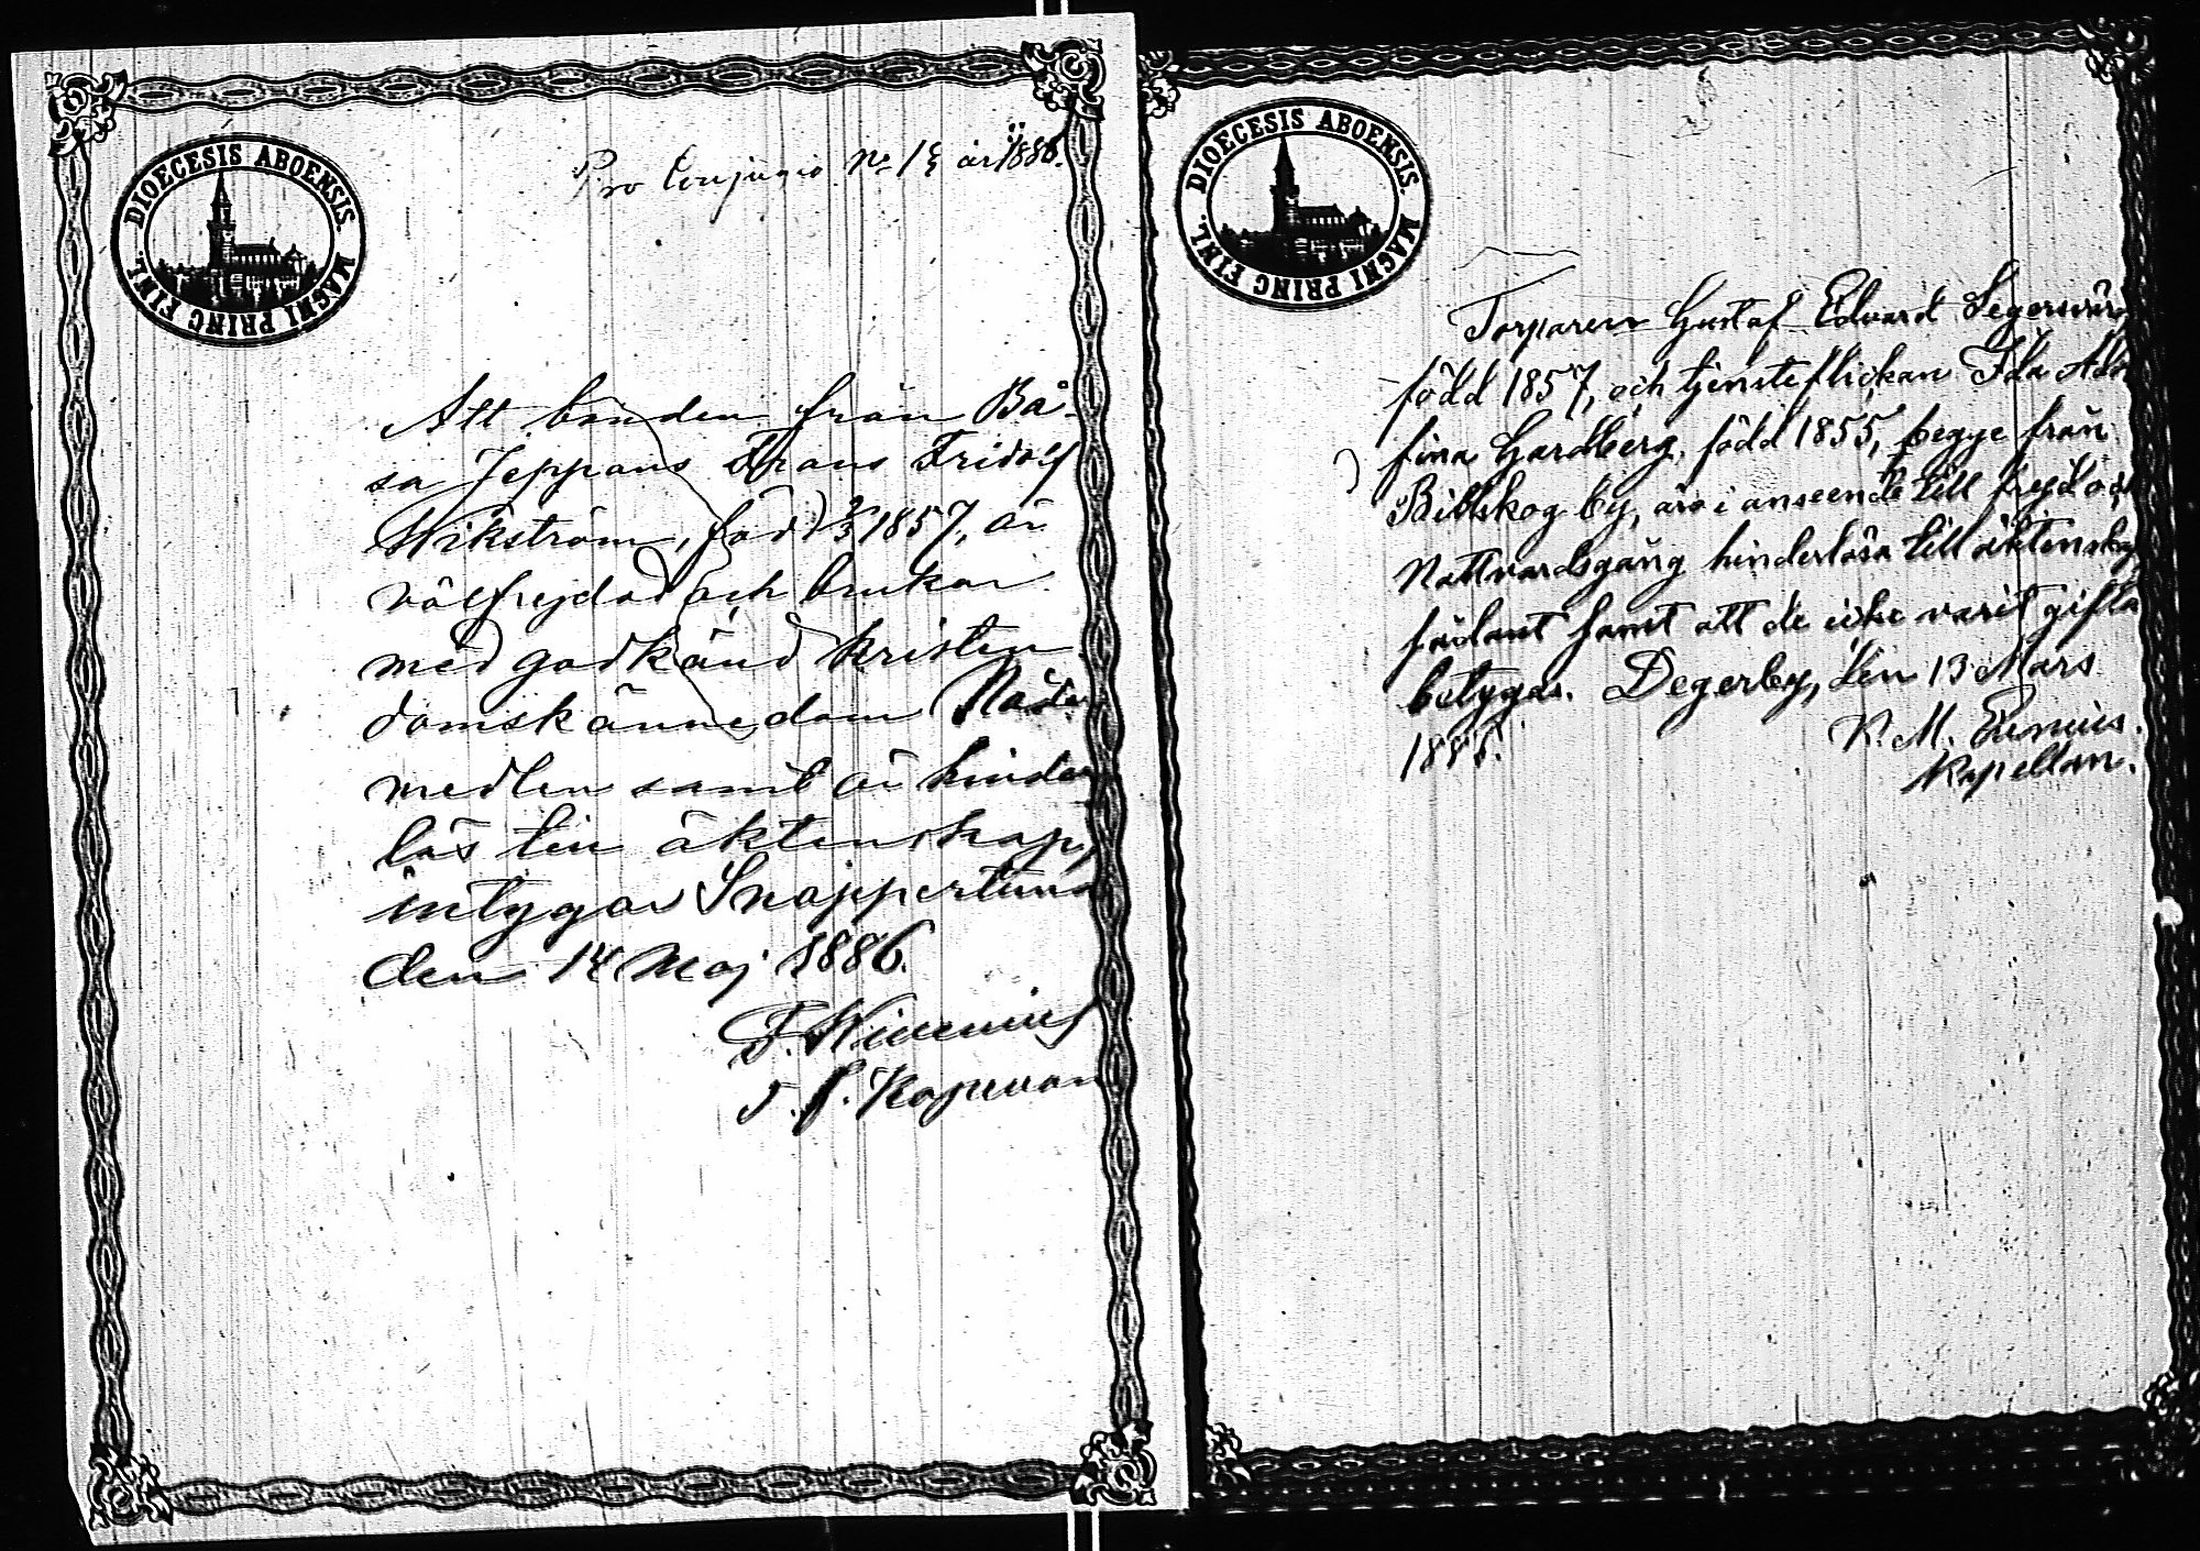 DIOECESIS ABOENSIS. MAGNI PRINC FINL.
Pro Conjugio No 15 år 1886.
Att bonden från Bå-
sa Jeppans Frans Fridolf
Wikström, född 2/3 1857, är
välfrejdad och brukar
med godkänd kristen
domskännedom Nåde
medlen samt är hinder
lös till äktenskap,
intygar Snappertuna
den 14 Maj 1886.
F.
t. f. Kapellan
DIOECESIS ABOENSIS. MAGNI PRINC FINL.
Torparen Gustaf Edvard
född 1857, och tjensteflickan Ida Adol
fina Gardberg, född 1855, begge från
Billskog by, äro i anseende till frejd och
Nattvardsgång hinderlösa till äktenskap
sådant samt att de icke varit gifta
betygas. Degerby, den 13 Mars
K. M.
Kapellan.